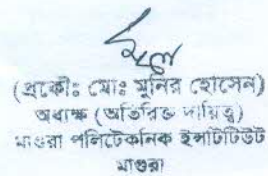 (প্রকৌঃ মোঃ মুনির হোসেন)
অধ্যক্ষ (অতিরিক্ত দায়িত্ব)
মাগুরা পলিটেকনিক ইন্সটিটিউট
মাগুরা